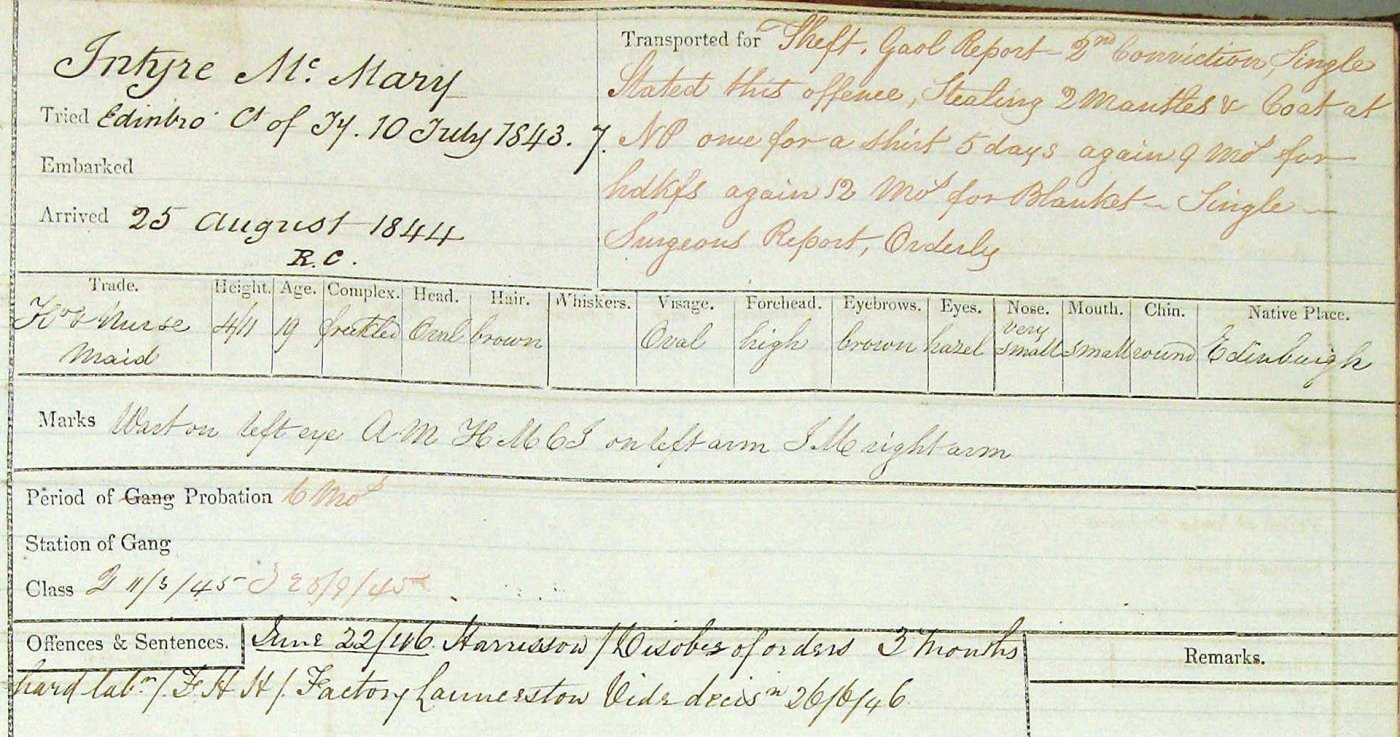 Intyre Mc Mary
Tried Edinbro' Ct of Jy. 10 July 1843. 7.
Embarked
Arrived 25 August 1844
R.C.
Transported for Theft, Gaol Report - 2nd Conviction, Single
Stated this offence, Stealing 2 Mantles & Coat at
NP once for a shirt 5 days again 9 Mos for
hdkfs again 12 Mos for Blanket - Single -
Surgeons Report, Orderly
Trade. Height. Age. Complex. Head. Hair. Whiskers. Visage. Forehead. Eyebrows. Eyes. Nose. Mouth. Chin. Native Place.
Hd & Nurse Maid 4/11 19 freckled Oval brown Oval high brown hazel very small small round Edinburgh
Marks Wart on left eye A M H M C J on left arm J M right arm
Period of Gang Probation 6 Mos
Station of Gang
Class 2 11/3/45 3 /9/45
Offences & Sentences. June 22/46. Harrisson / Disobce of orders 3 Months
Remarks.
hard labr / F H H /. Factory Launceston Vide decisn 26/6/46